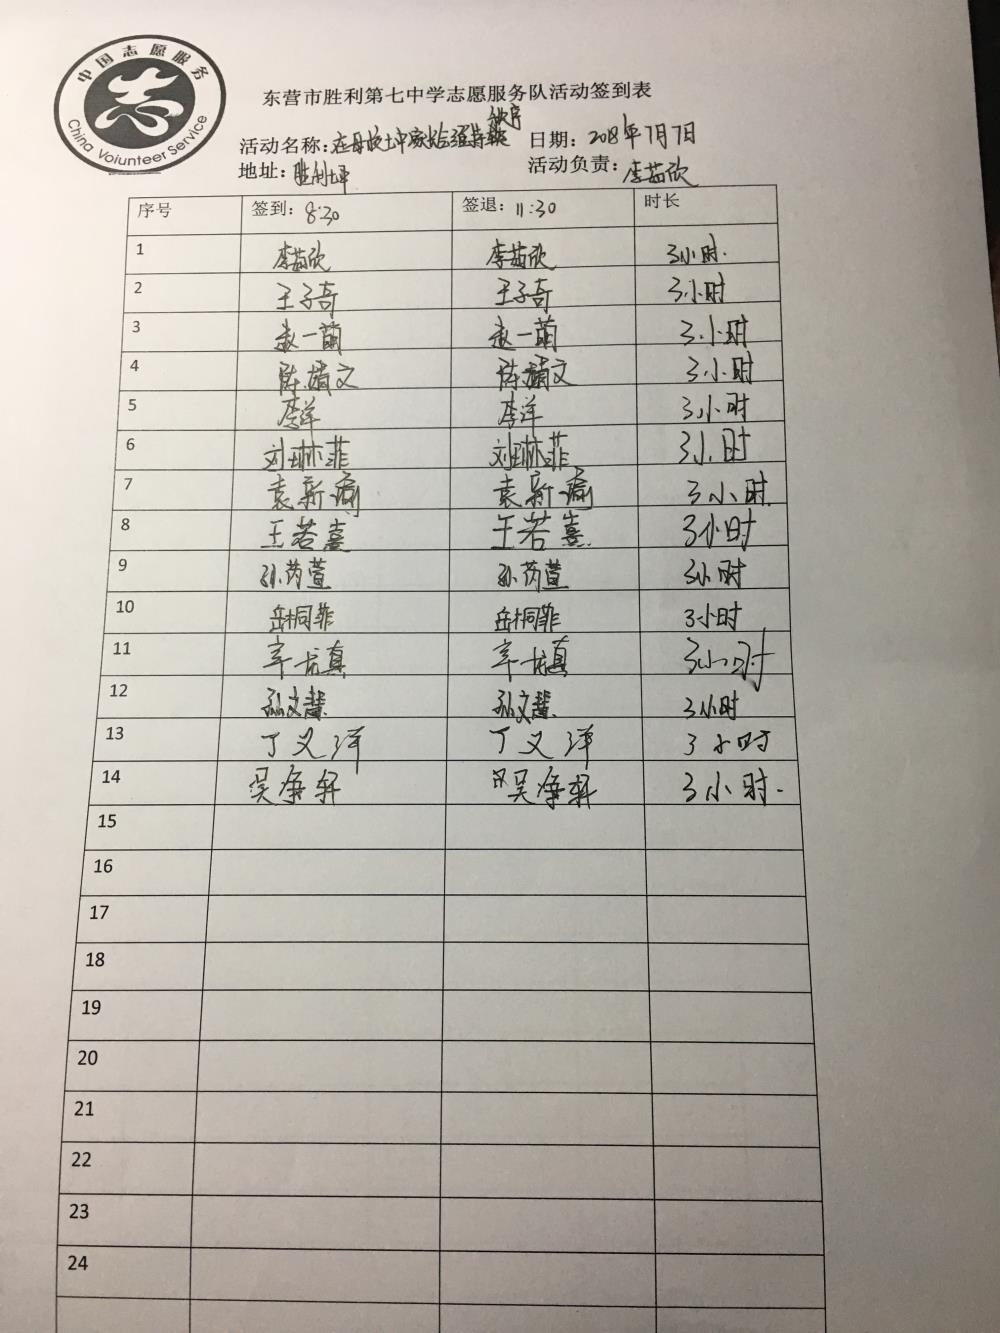 中国志愿服务
China Volunteer Service
东营市胜利第七中学志愿服务队活动签到表
秩序
活动名称:在母校七中家长会维持 日期:2018年7月7日
地址:胜利七中 活动负责:李茹欣
序号 签到:8:30 签退:11:30 时长
1 李茹欣 李茹欣 3小时.
2 王子奇 王子奇 3小时
3 赵一萌 赵一萌 3小时
4 陈婧文 陈婧文 3小时
5 李洋 李洋 3小时
6 刘琳菲 刘琳菲 3小时
7 袁新瑜 袁新瑜 3小时.
8 王若熹 王若熹 3小时
9 孙芮萱 孙芮萱 3小时
10 岳桐菲 岳桐菲 3小时
11 辛尤真 辛尤真 3小时
12 孙文慧 孙文慧 3小时
13 丁义洋 丁义洋 3小时
14 吴筝轩 吴筝轩 3小时.
15
16
17
18
19
20
21
22
23
24